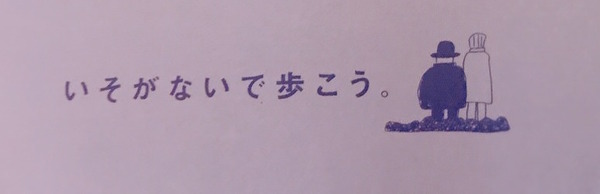 いそがないで歩こう。